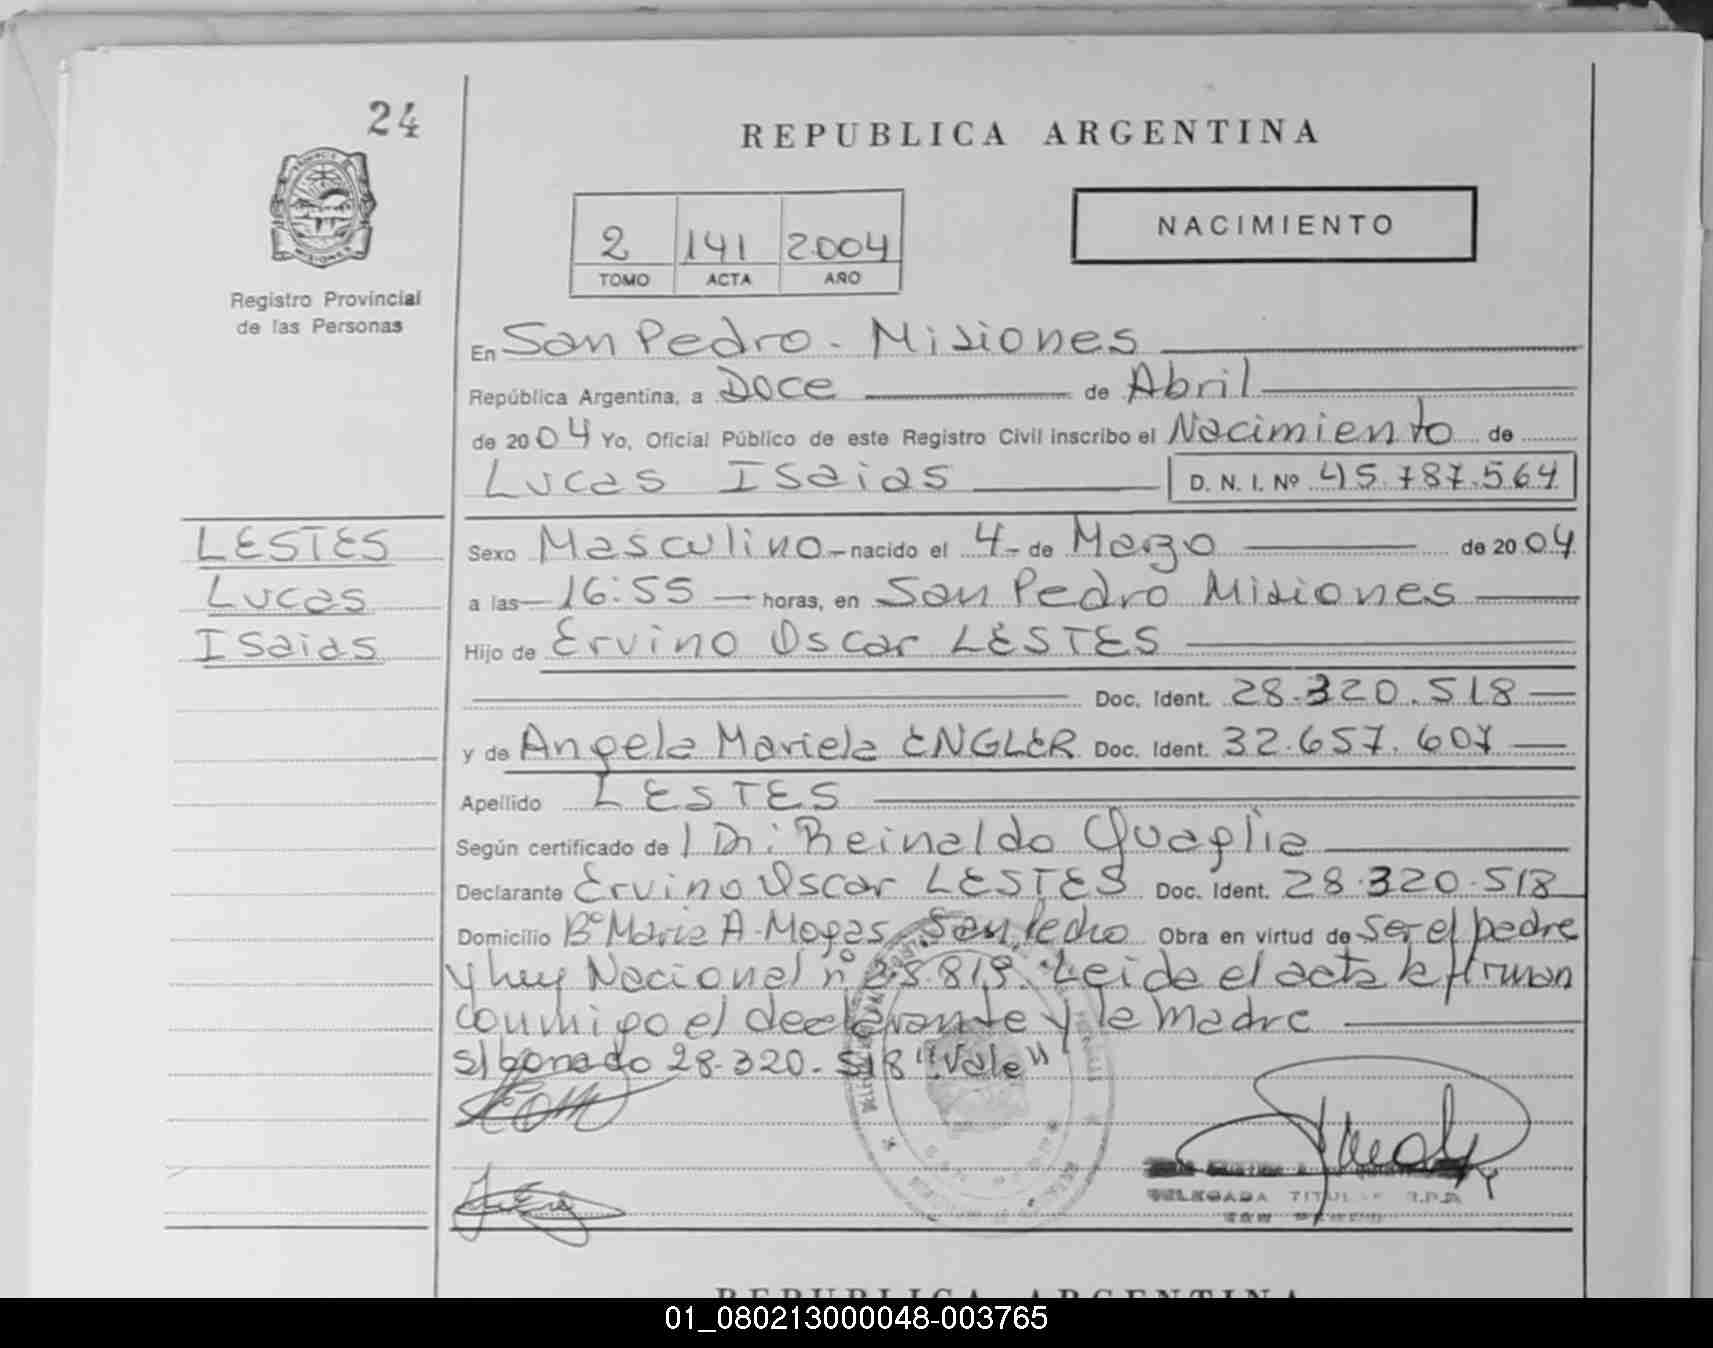 24
REPUBLICA ARGENTINA
2 141 2004
TOMO ACTA AÑO
NACIMIENTO
Registro Provincial
de las Personas
En San Pedro - Misiones
República Argentina, a Doce de Abril
de 2004 Yo, Oficial Público de este Registro Civil inscribo el Nacimiento de
Lucas Isaias D. N. I. Nº 45.787.564
LESTES
Lucas
Isaias
Sexo Masculino - nacido el 4 - de Marzo de 2004
a las - 16:55 - horas, en San Pedro Misiones
Hijo de Ervino Oscar LESTES
Doc. Ident. 28.320.518
y de Angela Mariela ENGLER Doc. Ident. 32.657.607
Apellido LESTES
Según certificado de / Dr: Reinaldo Quaglia
Declarante Ervino Oscar LESTES Doc. Ident. 28.320.518
Domicilio Bº Maria A. Mogas San Pedro Obra en virtud de ser el padre
y ley Nacional nº 23.819. Leida el acta la firman
conmigo el declarante y la madre
s/ 28.320.518 "Vale"
DELEGADA TITULAR R.P.P.
SAN PEDRO
REPUBLICA ARGENTINA
01_080213000048-003765